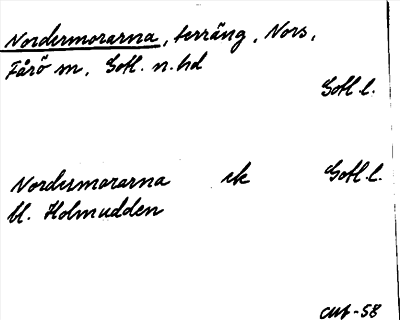 Nordermorarna, terräng, Nors,
Fårö sn, Gotl. n. hd
Gotl l.
Nordermorarna ek Gotl. l.
bl. Holmudden